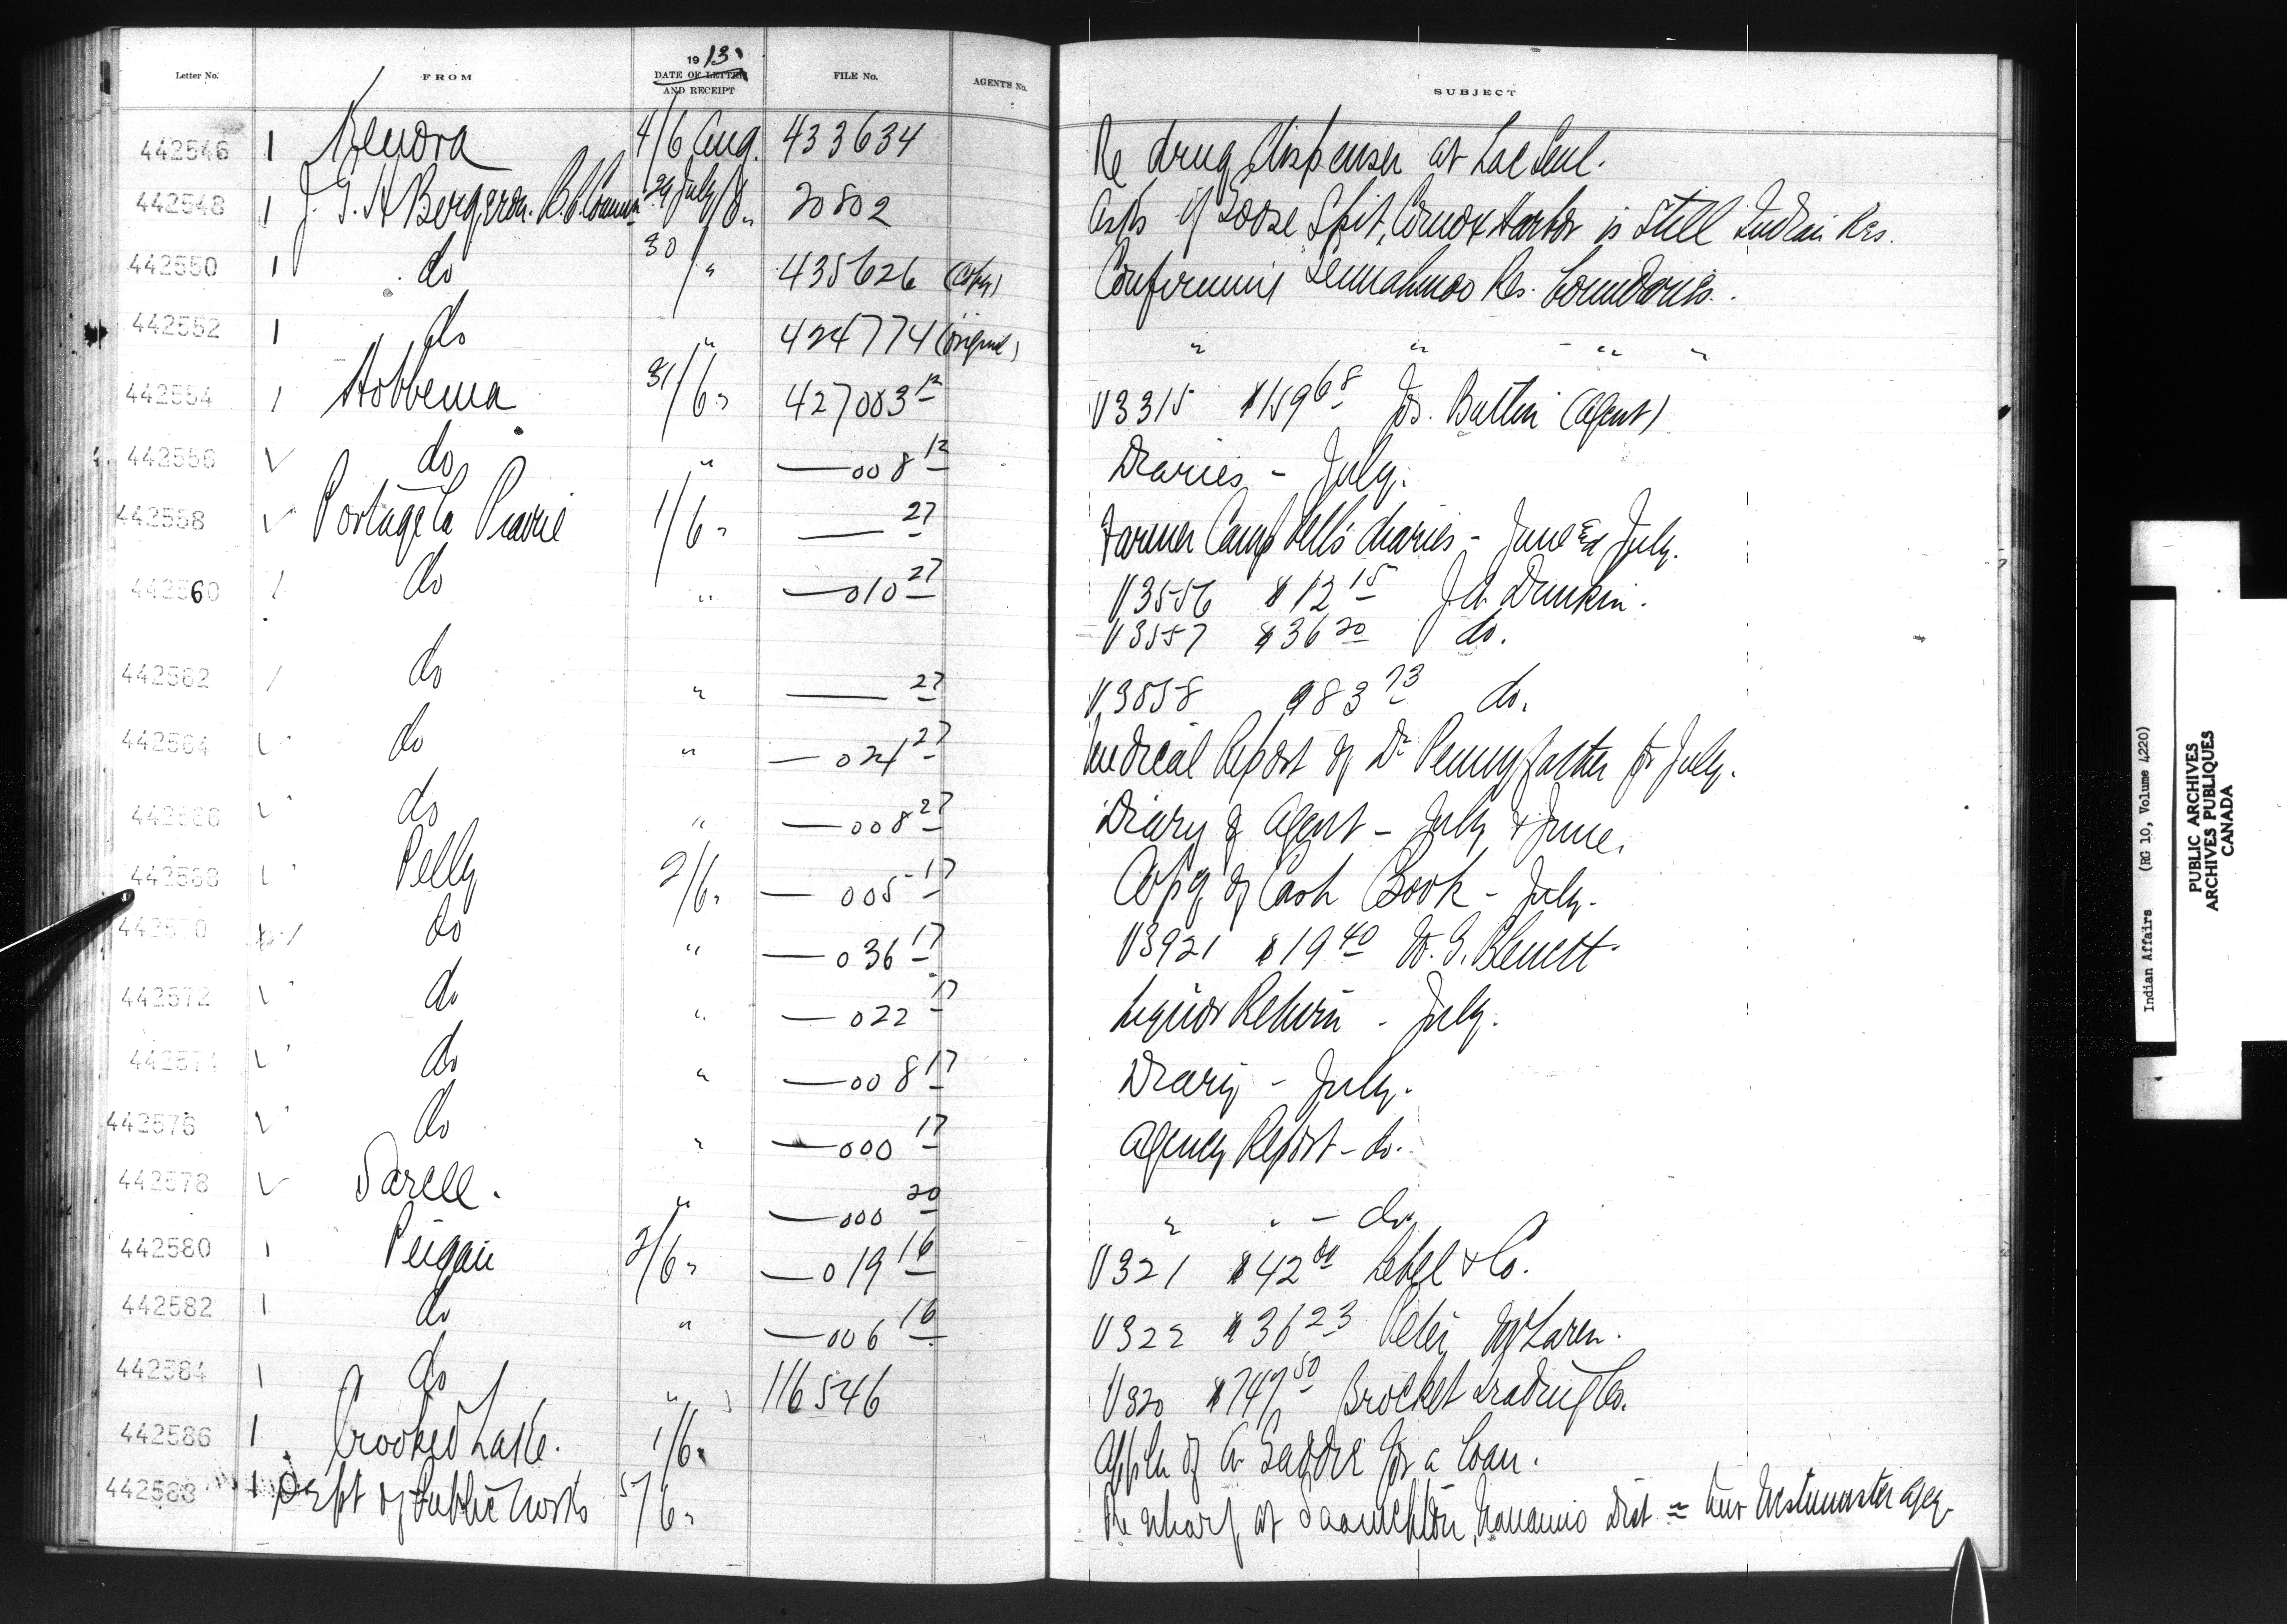 1913
Letter No. FROM DATE OF LETTER AND RECEIPT FILE No. AGENT'S No. SUBJECT
442546 1 Kenora 4/6 Aug. 433634 Re drug dispenser at Lac Seul.
442548 1 J. G. H Bergeron. B.C. Comm 29 July/6 " 20802 Asks if Goose Spit, Comox Harbor is still Indian Res.
442550 1 do 30/ " 435626 (Copy) Confirming Res. boundaries.
442552 1 do " 424774 (original) " " " "
442554 1 Hobbema 31/6 " 427003 12 V3315 $159 68 Jos. Butlin (Agent)
442556 ✓ do " — 008 12 Diaries - July.
442558 ✓ Portage la Prairie 1/6 " — 27 Farmer Campbell's diaries - June & July.
442560 / do " — 010 27 V3556 $12 15 J A Dunkin.
V3557 $36 20 do.
442562 / do " — 27 V3558 983 73 do.
442564 ✓ do " — 024 27 Medical Report of Dr Pennyfather for July.
442566 ✓ do " — 008 27 Diary of Agent - July & June.
442568 ✓ Pelly 2/6 " — 005 17 Copy of Cash Book - July.
442570 do " — 036 17 V3921 $19 40 W. G. Blewett.
442572 ✓ do " — 022 17 Liquor Return - July.
442574 ✓ do " — 008 17 Diary - July.
442576 ✓ do " — 000 17 Agency Report - do.
442578 ✓ Sarcee. " — 000 20 " " - do.
442580 1 Peigan 2/6 " — 019 16 V321 $42 00 Lebel & Co.
442582 1 do " — 006 16 V322 $36 23 Peter McLaren.
442584 1 do " 116546 V320 $747 50 Brocket Trading Co.
442586 1 Crooked Lake. 1/6 " Appln of A for a loan.
442588 1 Dept of Public Works 5/6 " Re wharf at Saanichton, Nanaimo Dist = New Westminster Agcy
Indian Affairs (RG 10, Volume 4220)
PUBLIC ARCHIVES
ARCHIVES PUBLIQUES
CANADA